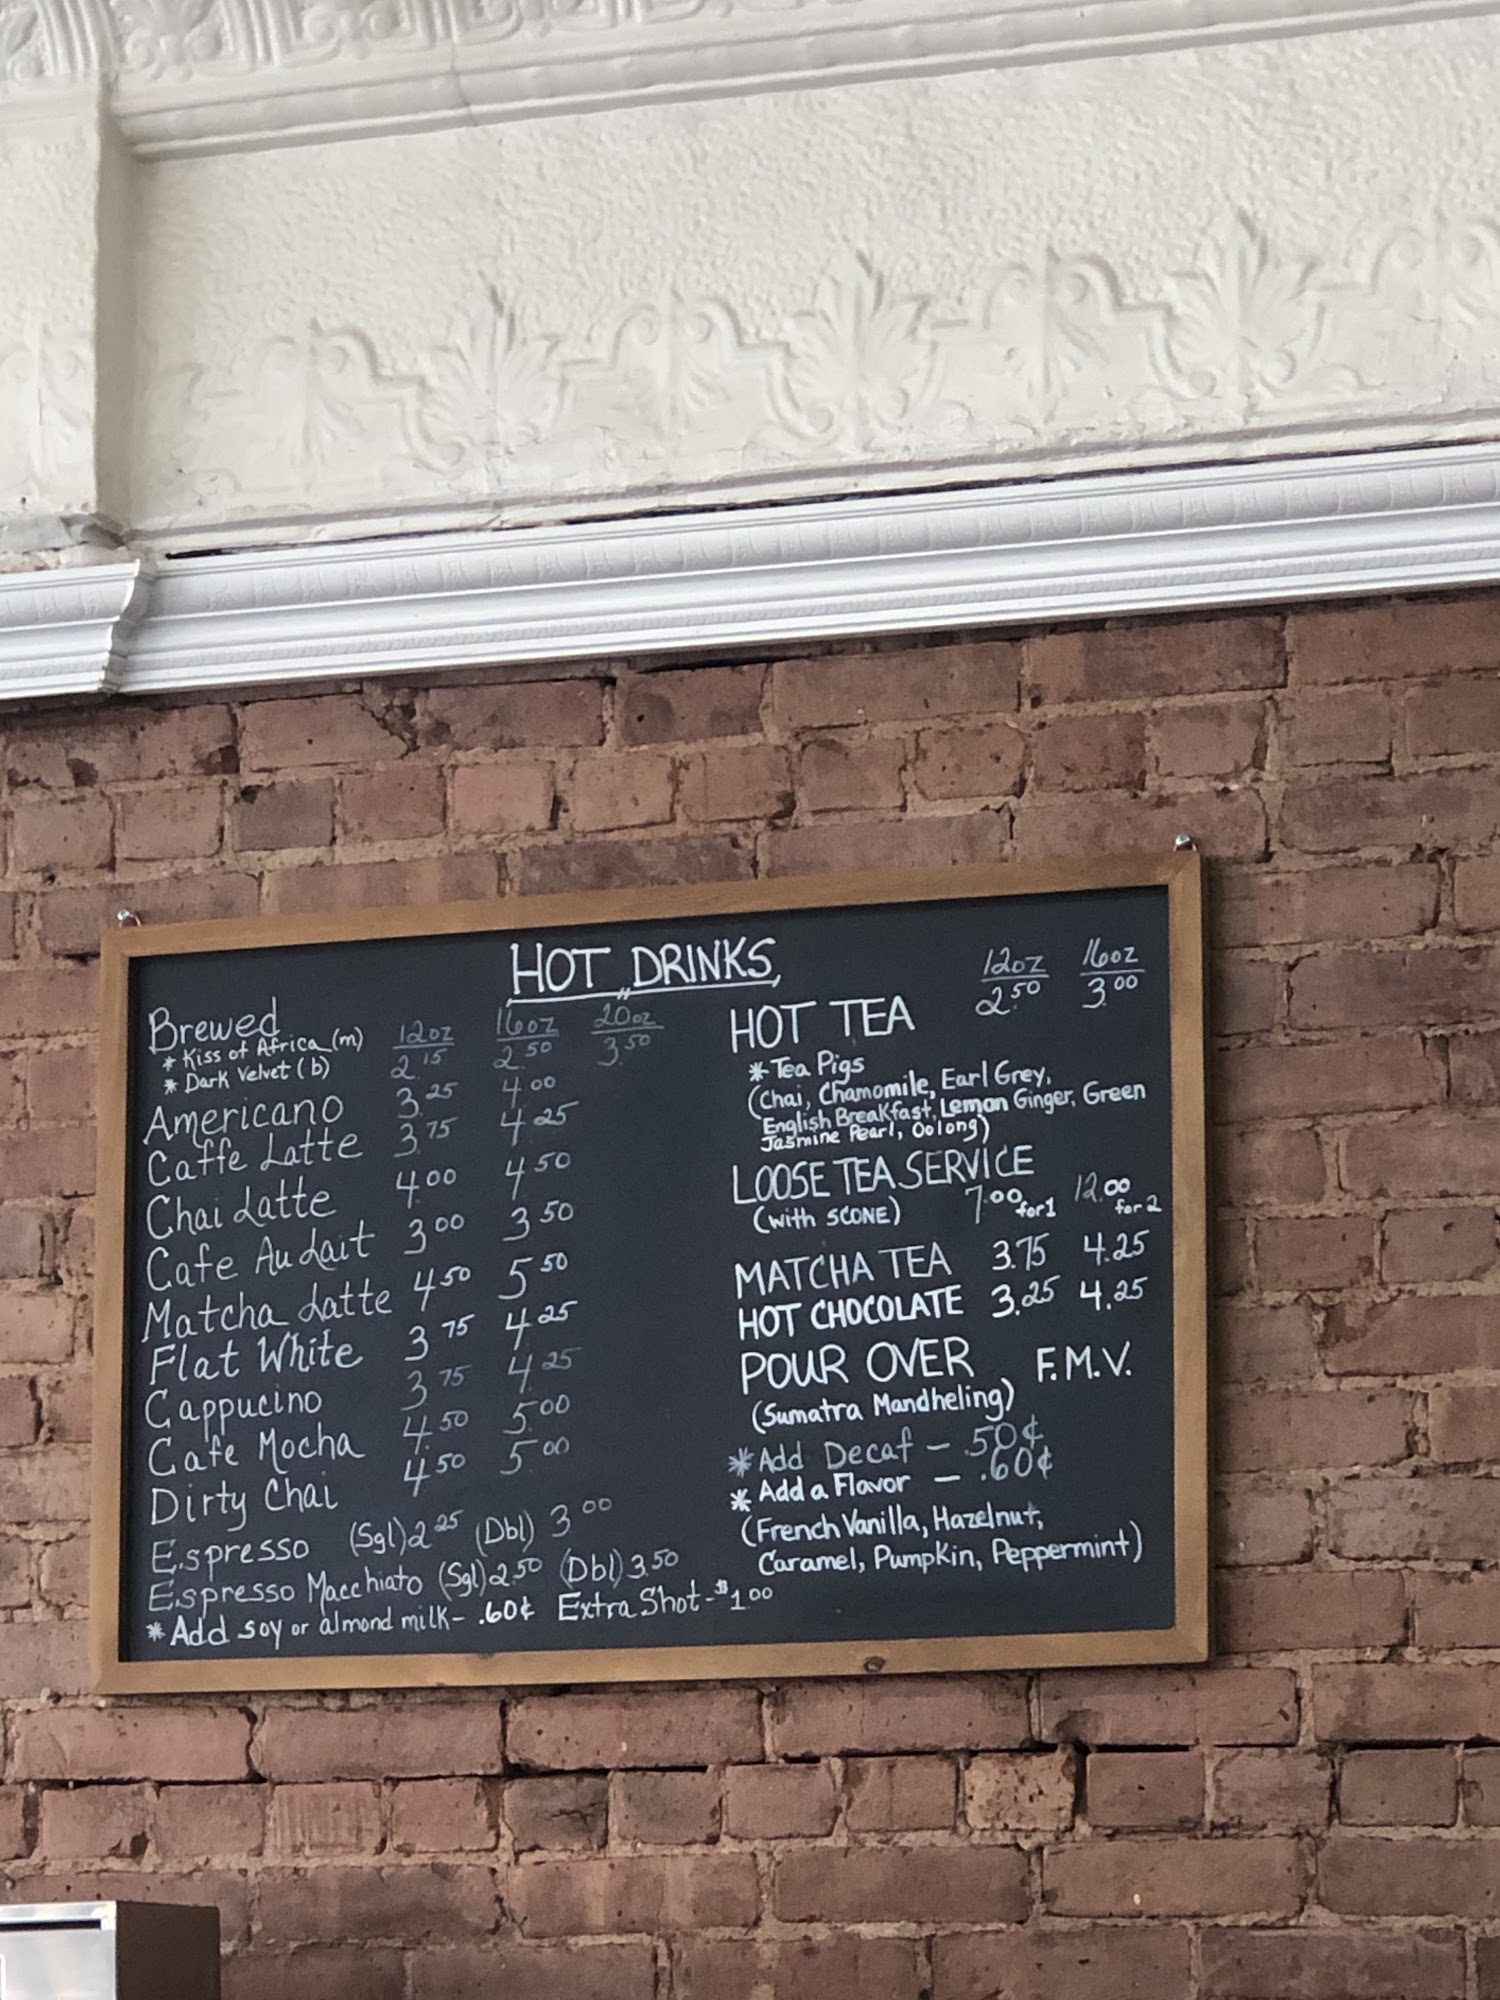 HOT DRINKS
Brewed 12oz 16oz 20oz
* Kiss of Africa (m) 2.15 2.50 3.50
* Dark Velvet (b)
Americano 3.25 4.00
Caffe Latte 3.75 4.25
Chai Latte 4.00 4.50
Cafe Au Lait 3.00 3.50
Matcha Latte 4.50 5.50
Flat White 3.75 4.25
Cappucino 3.75 4.25
Cafe Mocha 4.50 5.00
Dirty Chai 4.50 5.00
Espresso (Sgl) 2.25 (Dbl) 3.00
Espresso Macchiato (Sgl) 2.50 (Dbl) 3.50
* Add soy or almond milk - .60¢ Extra Shot - $1.00
12oz 16oz
HOT TEA 2.50 3.00
* Tea Pigs
(Chai, Chamomile, Earl Grey,
English Breakfast, Lemon Ginger, Green
Jasmine Pearl, Oolong)
LOOSE TEA SERVICE
(with SCONE) 7.00 for 1 12.00 for 2
MATCHA TEA 3.75 4.25
HOT CHOCOLATE 3.25 4.25
POUR OVER F.M.V.
(Sumatra Mandheling)
* Add Decaf - .50¢
* Add a Flavor - .60¢
(French Vanilla, Hazelnut,
Caramel, Pumpkin, Peppermint)